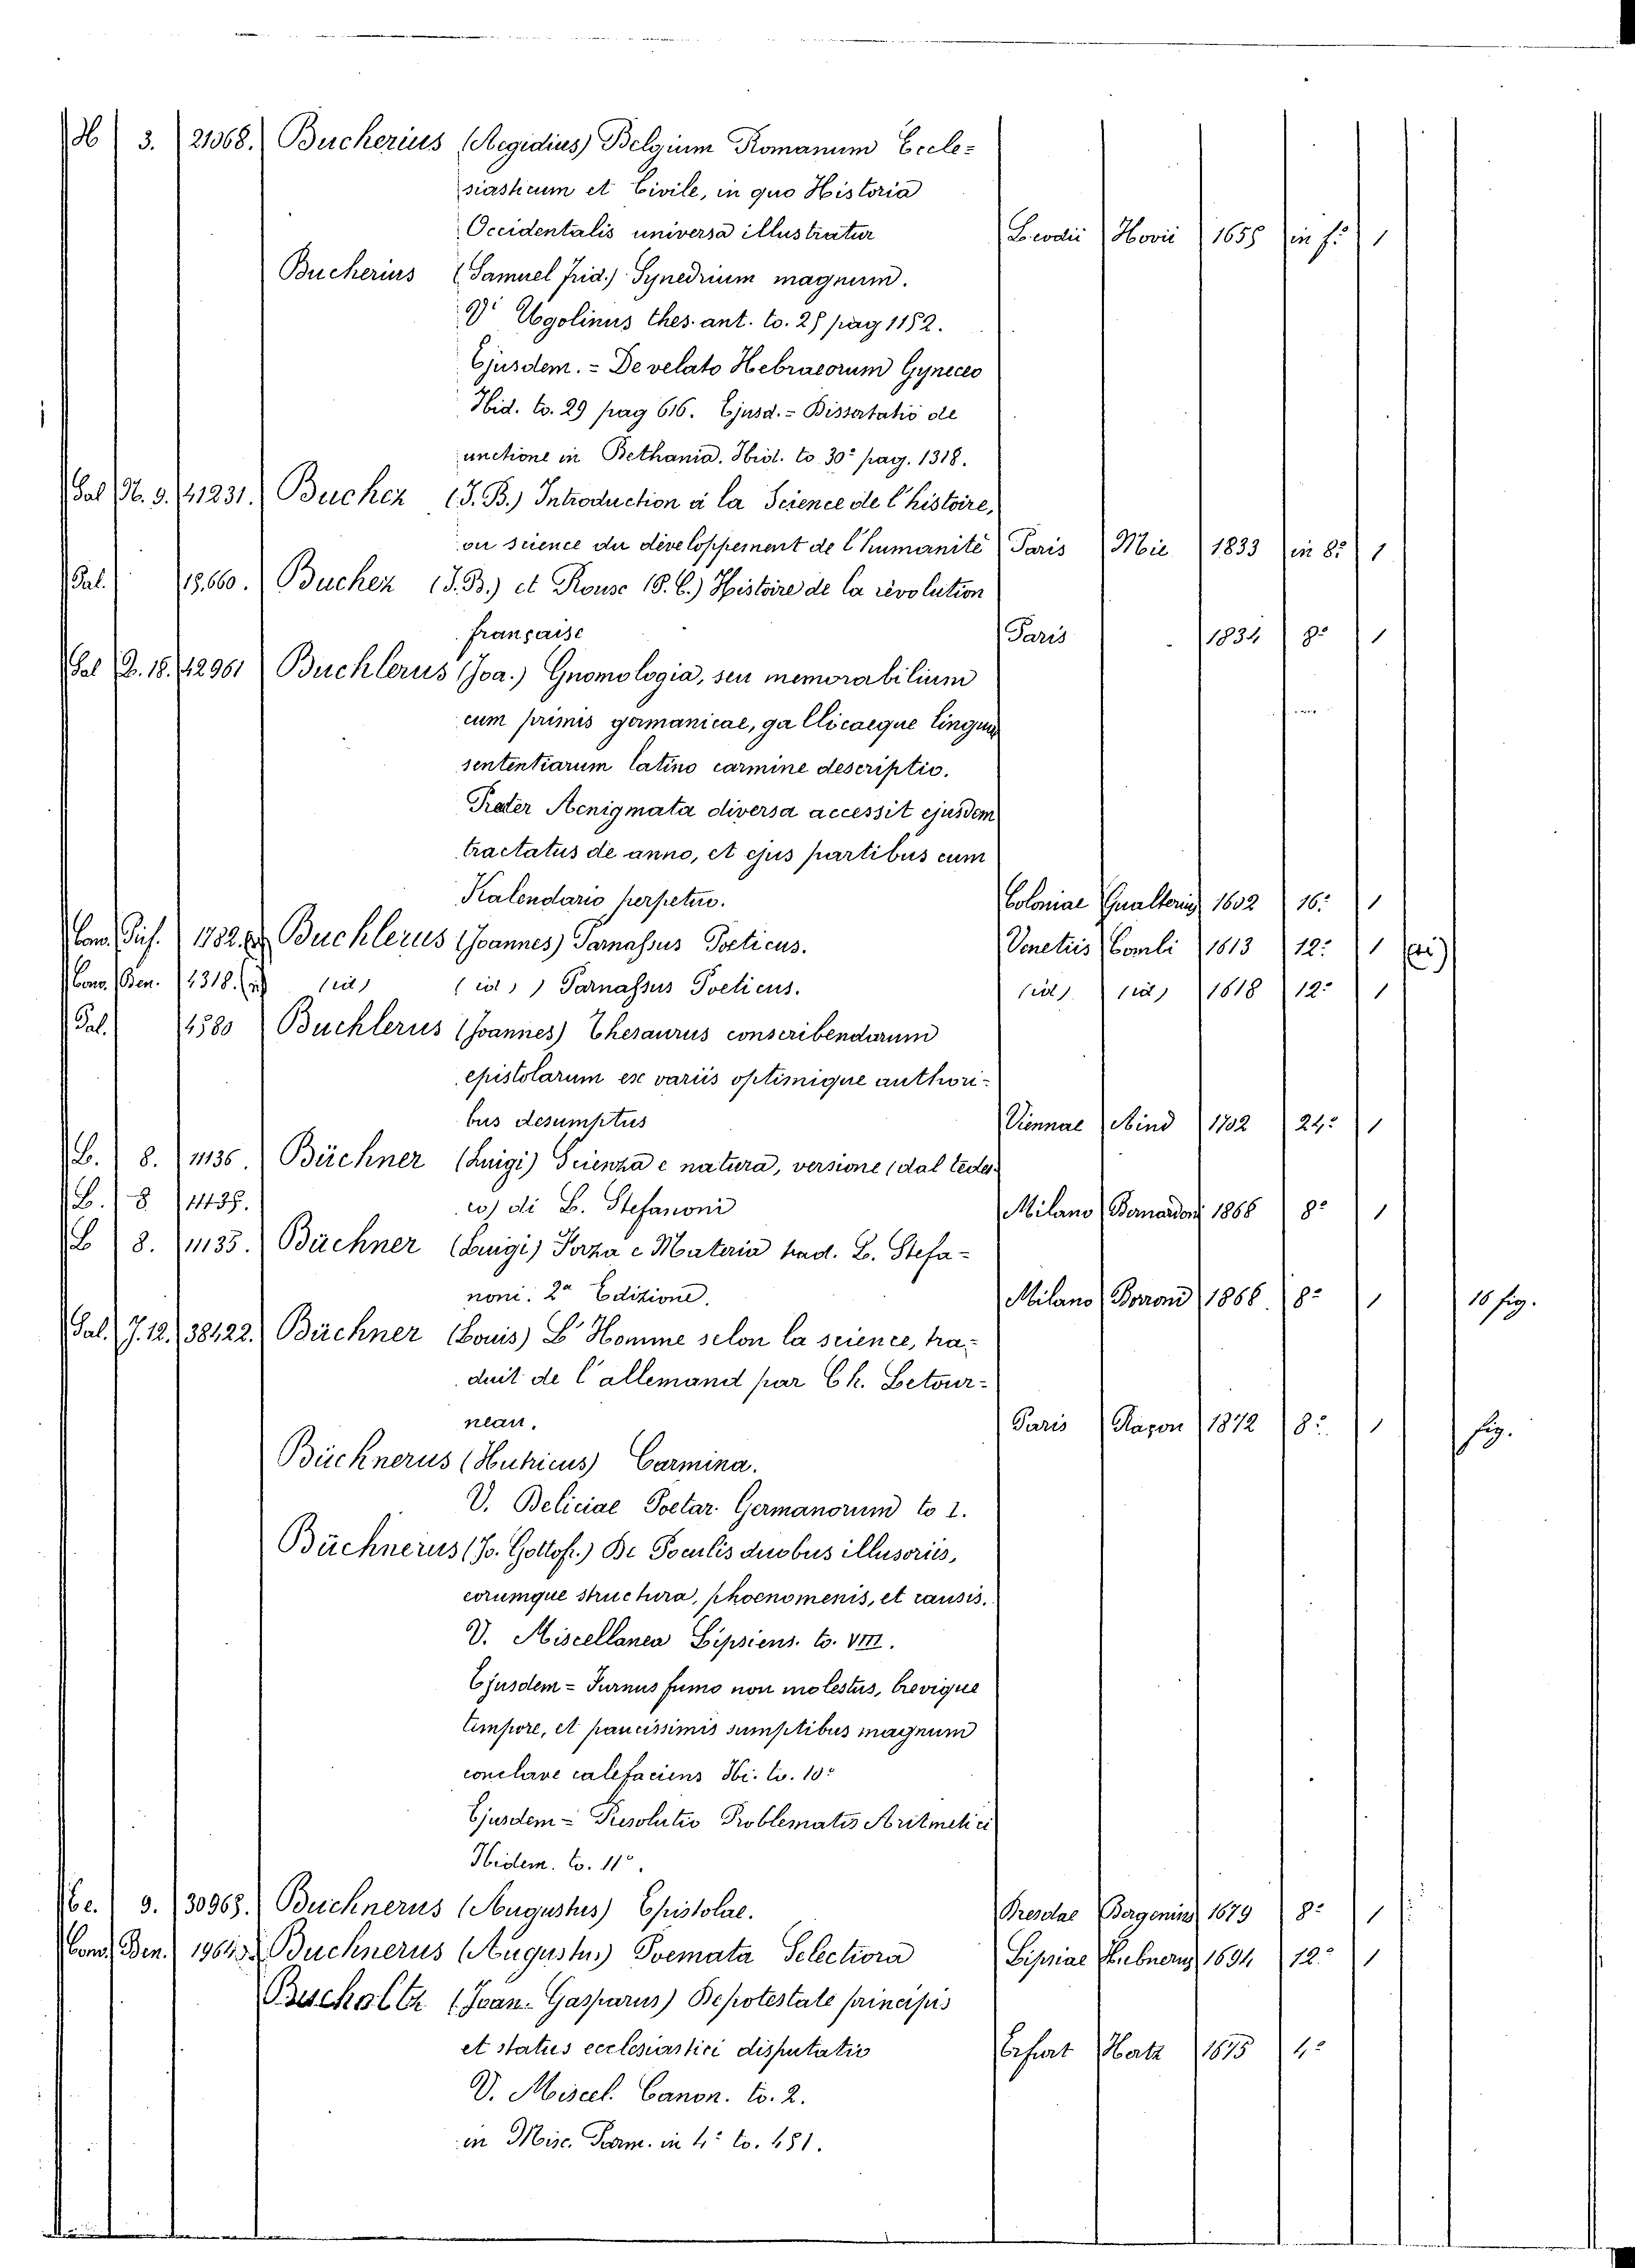 H 3. 21068. Bucherius (Aegidius) Belgium Romanum Eccle-
siasticum et Civile, in quo Historia
Occidentalis universa illustratur Leodii Hovii 1655 in f.° 1
Bucherius (Samuel Frid.) Synedrium magnum.
Ugolinus thes. ant. to. 25 pag 1152.
Ejusdem. = De velato Hebraeorum Gyneceo
Ibid. to. 29 pag 616. Ejusd. = Dissertatio de
unctione in Bethania. Ibid. to. 30° pag. 1318.
Sal N. 9. 41231. Buchez (J. B.) Introduction à la Science de l'histoire,
ou science du développement de l'humanité Paris Mie 1833 in 8.° 1
Sal. 15,660. Buchez (J. B.) et Rouse (P. C.) Histoire de la révolution
française Paris 1834 8° 1
Sal D. 18. 42961 Buchlerus (Joa.) Gnomologia, seu memorabilium
cum primis germanicae, gallicaeque linguae
sententiarum latino carmine descriptio.
Praeter Aenigmata diversa accessit ejusdem
tractatus de anno, et ejus partibus cum
Kalendario perpetuo. Coloniae Gualterius 1602 16.° 1
Com. 1782. Buchlerus (Joannes) Parnassus Poeticus. Venetiis Combi 1613 12.° 1
Com. Ben. 4318. (id) (id) Parnassus Poeticus. (id) (id) 1618 12.° 1
Sal. 4580 Buchlerus (Joannes) Thesaurus conscribendarum
epistolarum ex variis optimique authori-
bus desumptus Viennae 1702 24.° 1
L. 8. 11136. Büchner (Luigi) Scienza e natura, versione (dal tedes-
L. 8 11135. co) di L. Stefanoni Milano Bernardoni 1868 8° 1
L 8. 11135. Büchner (Luigi) Forza e Materia trad. L. Stefa-
noni. 2a Edizione. Milano 1868 8° 1 16 fig.
Sal. J. 12. 38422. Büchner (Louis) L'Homme selon la science, tra-
duit de l'allemand par Ch. Letour-
neau. Paris Raçon 1872 8° 1 fig.
Büchnerus (Hutricus) Carmina.
V. Deliciae Poetar. Germanorum to 1.
Büchnerus (Jo. Gottofr.) De Poculis duobus illusoriis,
eorumque structura, phoenomenis, et causis.
V. Miscellanea Lipsiens. to. VIII.
Ejusdem = Furnus fumo non molestus, brevique
tempore, et paucissimis sumptibus magnum
conclave calefaciens Ibi. to. 10°
Ejusdem = Resolutio Problematis Aritmetici
Ibidem. to. 11°.
9. 30965. Buchnerus (Augustus) Epistolae. Dresdae Bergenius 1679 8° 1
Com. Ben. Buchnerus (Augustus) Poemata Selectiora Lipsiae Hubnerus 1694 12° 1
Bucholtz (Joan. Gasparus) De potestate principis
et status ecclesiastici disputatio Erfurt Hertz 1675 4°
V. Miscel. Canon. to. 2.
in Misc. Parm. in 4° to. 481.